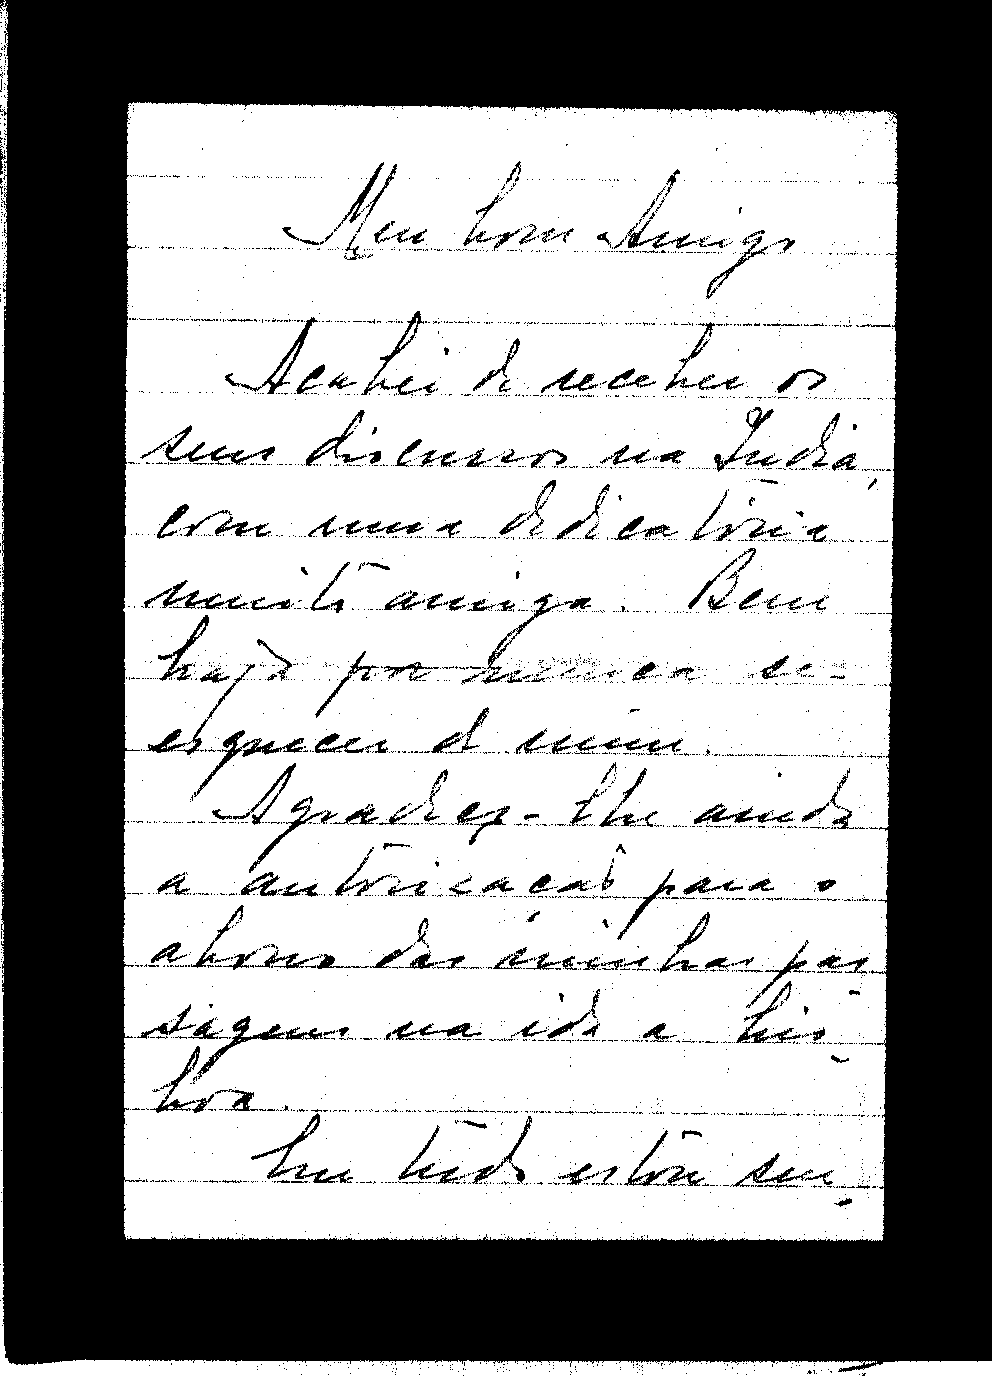 Meu bom Amigo
Acabei de receber os
seus discursos na India,
com uma dedicatória
muito amiga. Bem
haja por nunca se
esquecer de mim.
Agradeço-lhe ainda
a autorização para o
abono das minhas pas-
sagens na ida a Lis-
boa.
Em tudo estou sem-